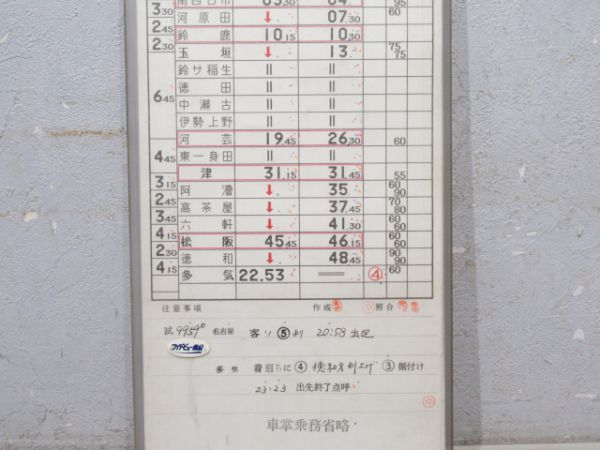 南四日市 05 30 04 95
3 30 河原田 ↓ 07 30 60
2 45 鈴鹿 10 15 10 30
2 30 玉垣 ↓ 13 75 75
鈴サ稲生 〃 〃
徳田 〃 〃
6 45 中瀬古 〃 〃
伊勢上野 〃 〃
河芸 19 45 26 30 60
4 45 東一身田 〃 〃
津 31 15 31 45 55
3 15 阿漕 ↓ 35 60 90
2 45 高茶屋 ↓ 37 45 70 80
3 45 六軒 ↓ 41 30 60 60
4 15 松阪 45 45 46 15 60
2 30 徳和 ↓ 48 45 90 90
4 15 多気 22.53 ― ④ 60
注意事項 作成 照合
試9959D 名古屋 客リ⑤より 20:58出区
ワイドビュー南紀
多気 着後ちに④ ③据付け
23:23 出先終了点呼
車掌乗務省略